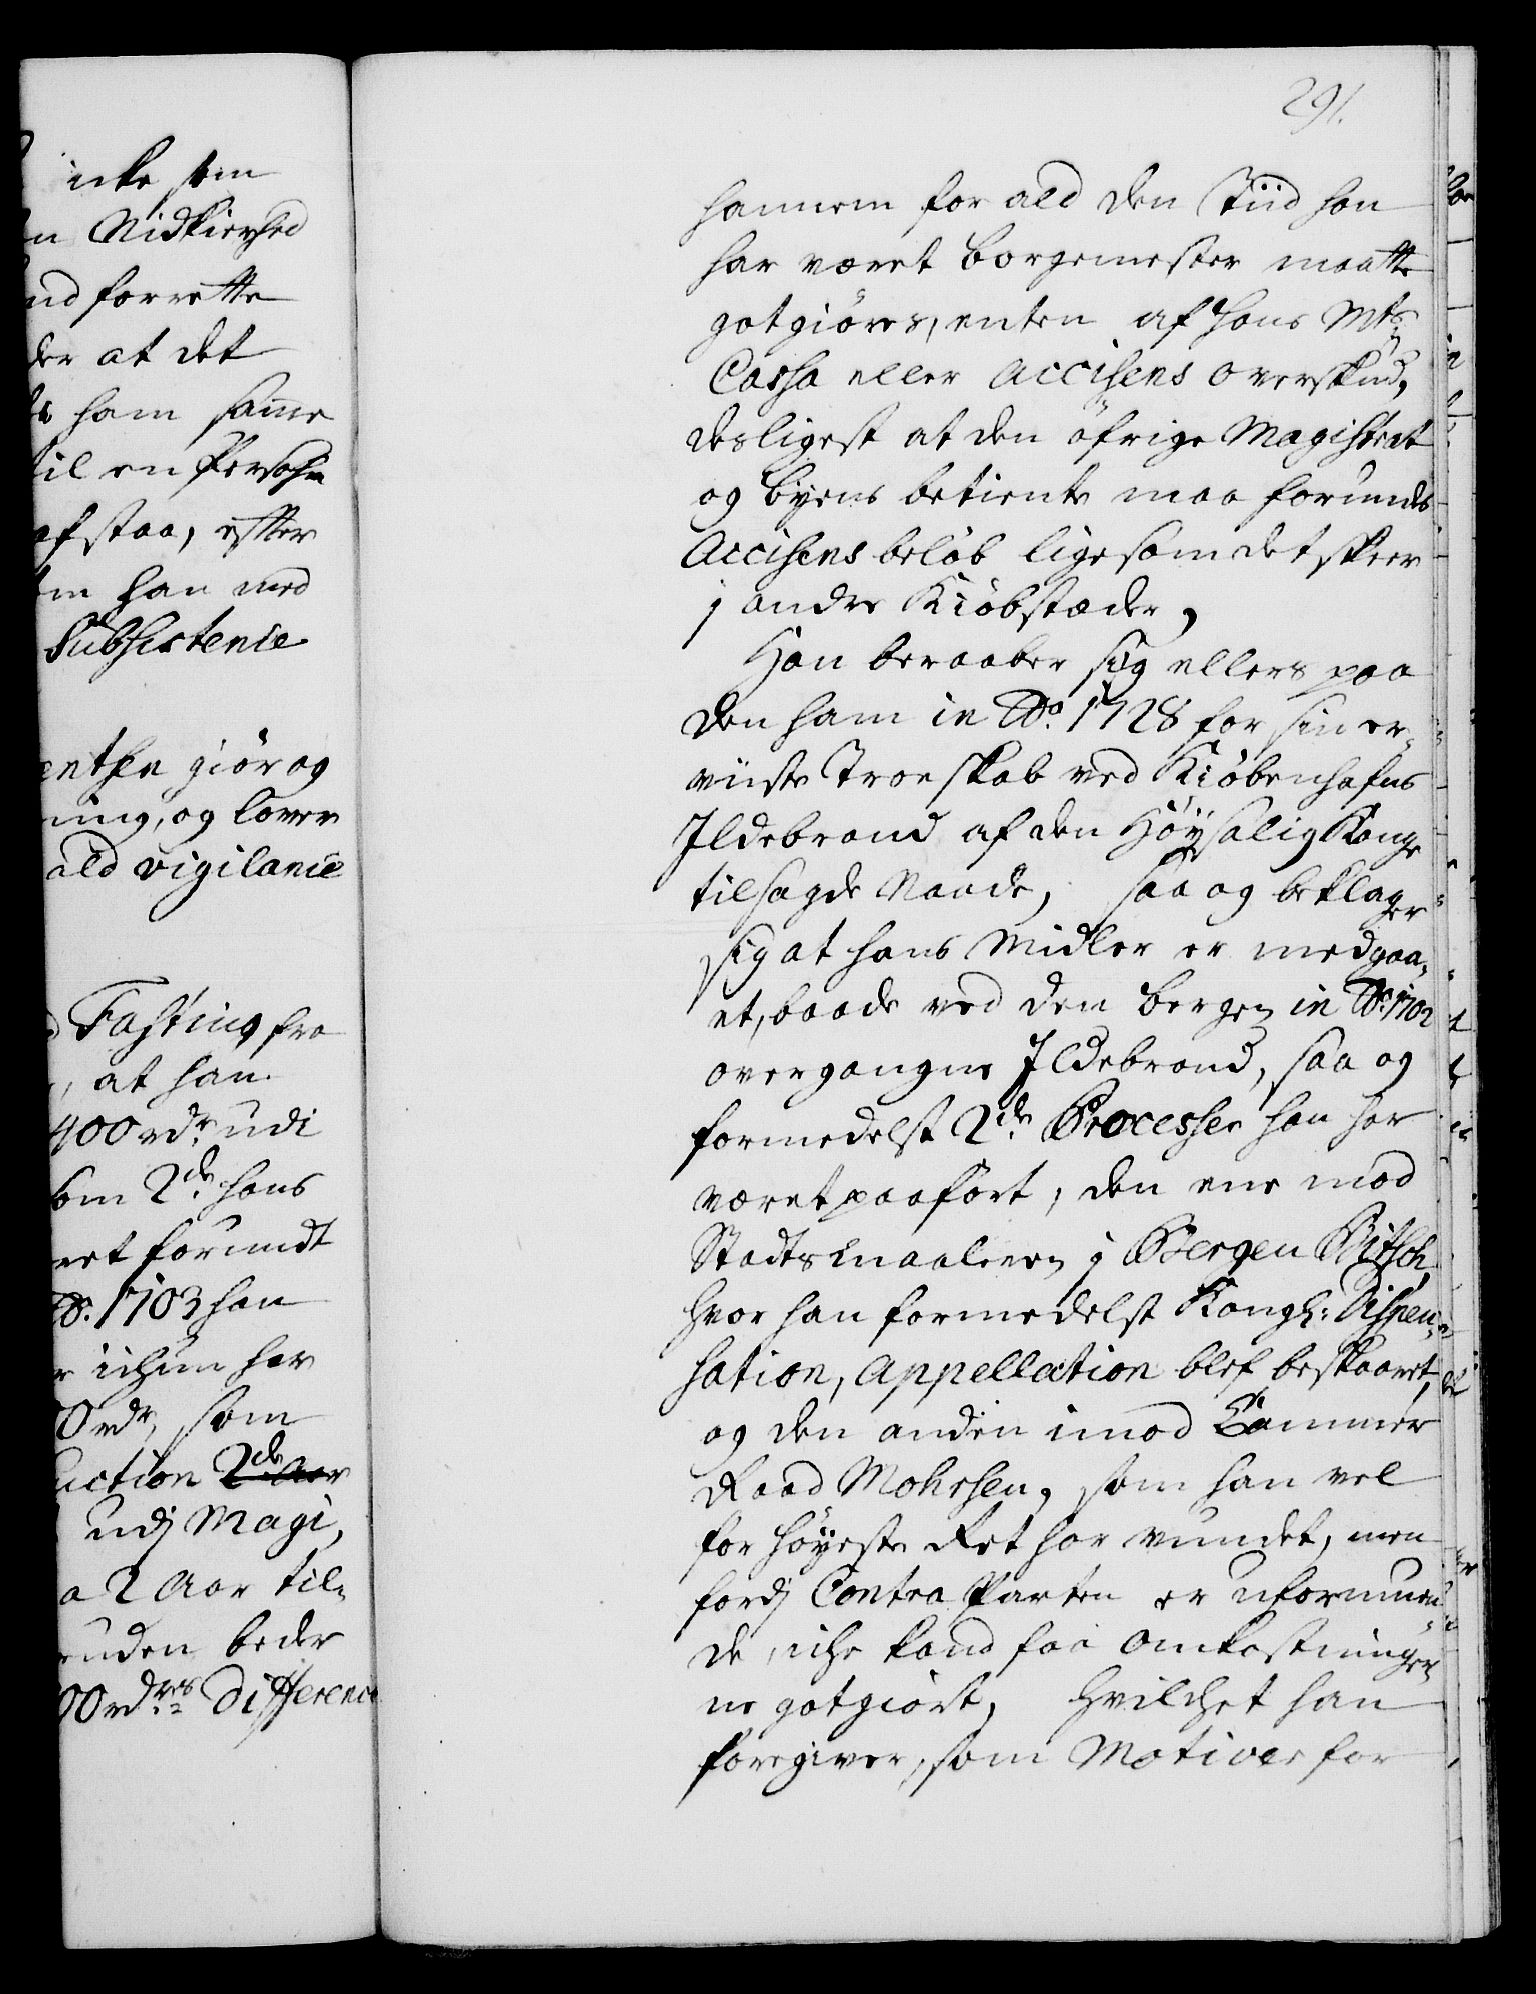 icke som
n Nidkierhed
nd forrette
der at det
ham samme
til en Persohn
afstaa, efter
han med
Subsistence
giör og
ning, og lover
ald vigilance
Fasting fra
, at han
400 rdr. udi
som 2de. hans
ret forundt
Ao. 1703 han
har
0 rdr, som
uction 2de Aar
udj Magi,
a 2 Aar til-
uden beder
00 rdrs. Difference
291.
hannem for ald den Tiid han
har været borgemester maatte
gotgiöres, enten af hans Mts
Cassa eller Accisens overskud,
desligest at den öfrige Magistrat
og byens betiente maa forundes
Accisens belöb ligesom det skeer
j andre Kiöbstæder,
Han beraaber sig ellers paa
den ham in Ao. 1728 for sin er-
viiste Troeskab ved Kiöbenhafns
Ildebrand af den Höysalig Konge
tilsagde Naade, saa og beklager
sig at hans Midler er medgaa-
et, baade ved den bergen in Ao. 1702
overgangne Ildebrand, saa og
formedelst 2de. Processer han har
været paafört, den ene mod
Stadtsmaaleren j Bergen Bitsch,
hvor han formedelst Kongl: Dispen-
sation, Appellation blef beskaaret,
og den anden imod Cammer
Raad Mohrsen, som han vel
for höyeste Ret har vundet, men
fordj Contra Parten er uformuen-
de, iche kand faa Omkostninger
ne gotgiört, hvilchet han
foregiver, som Motiver for